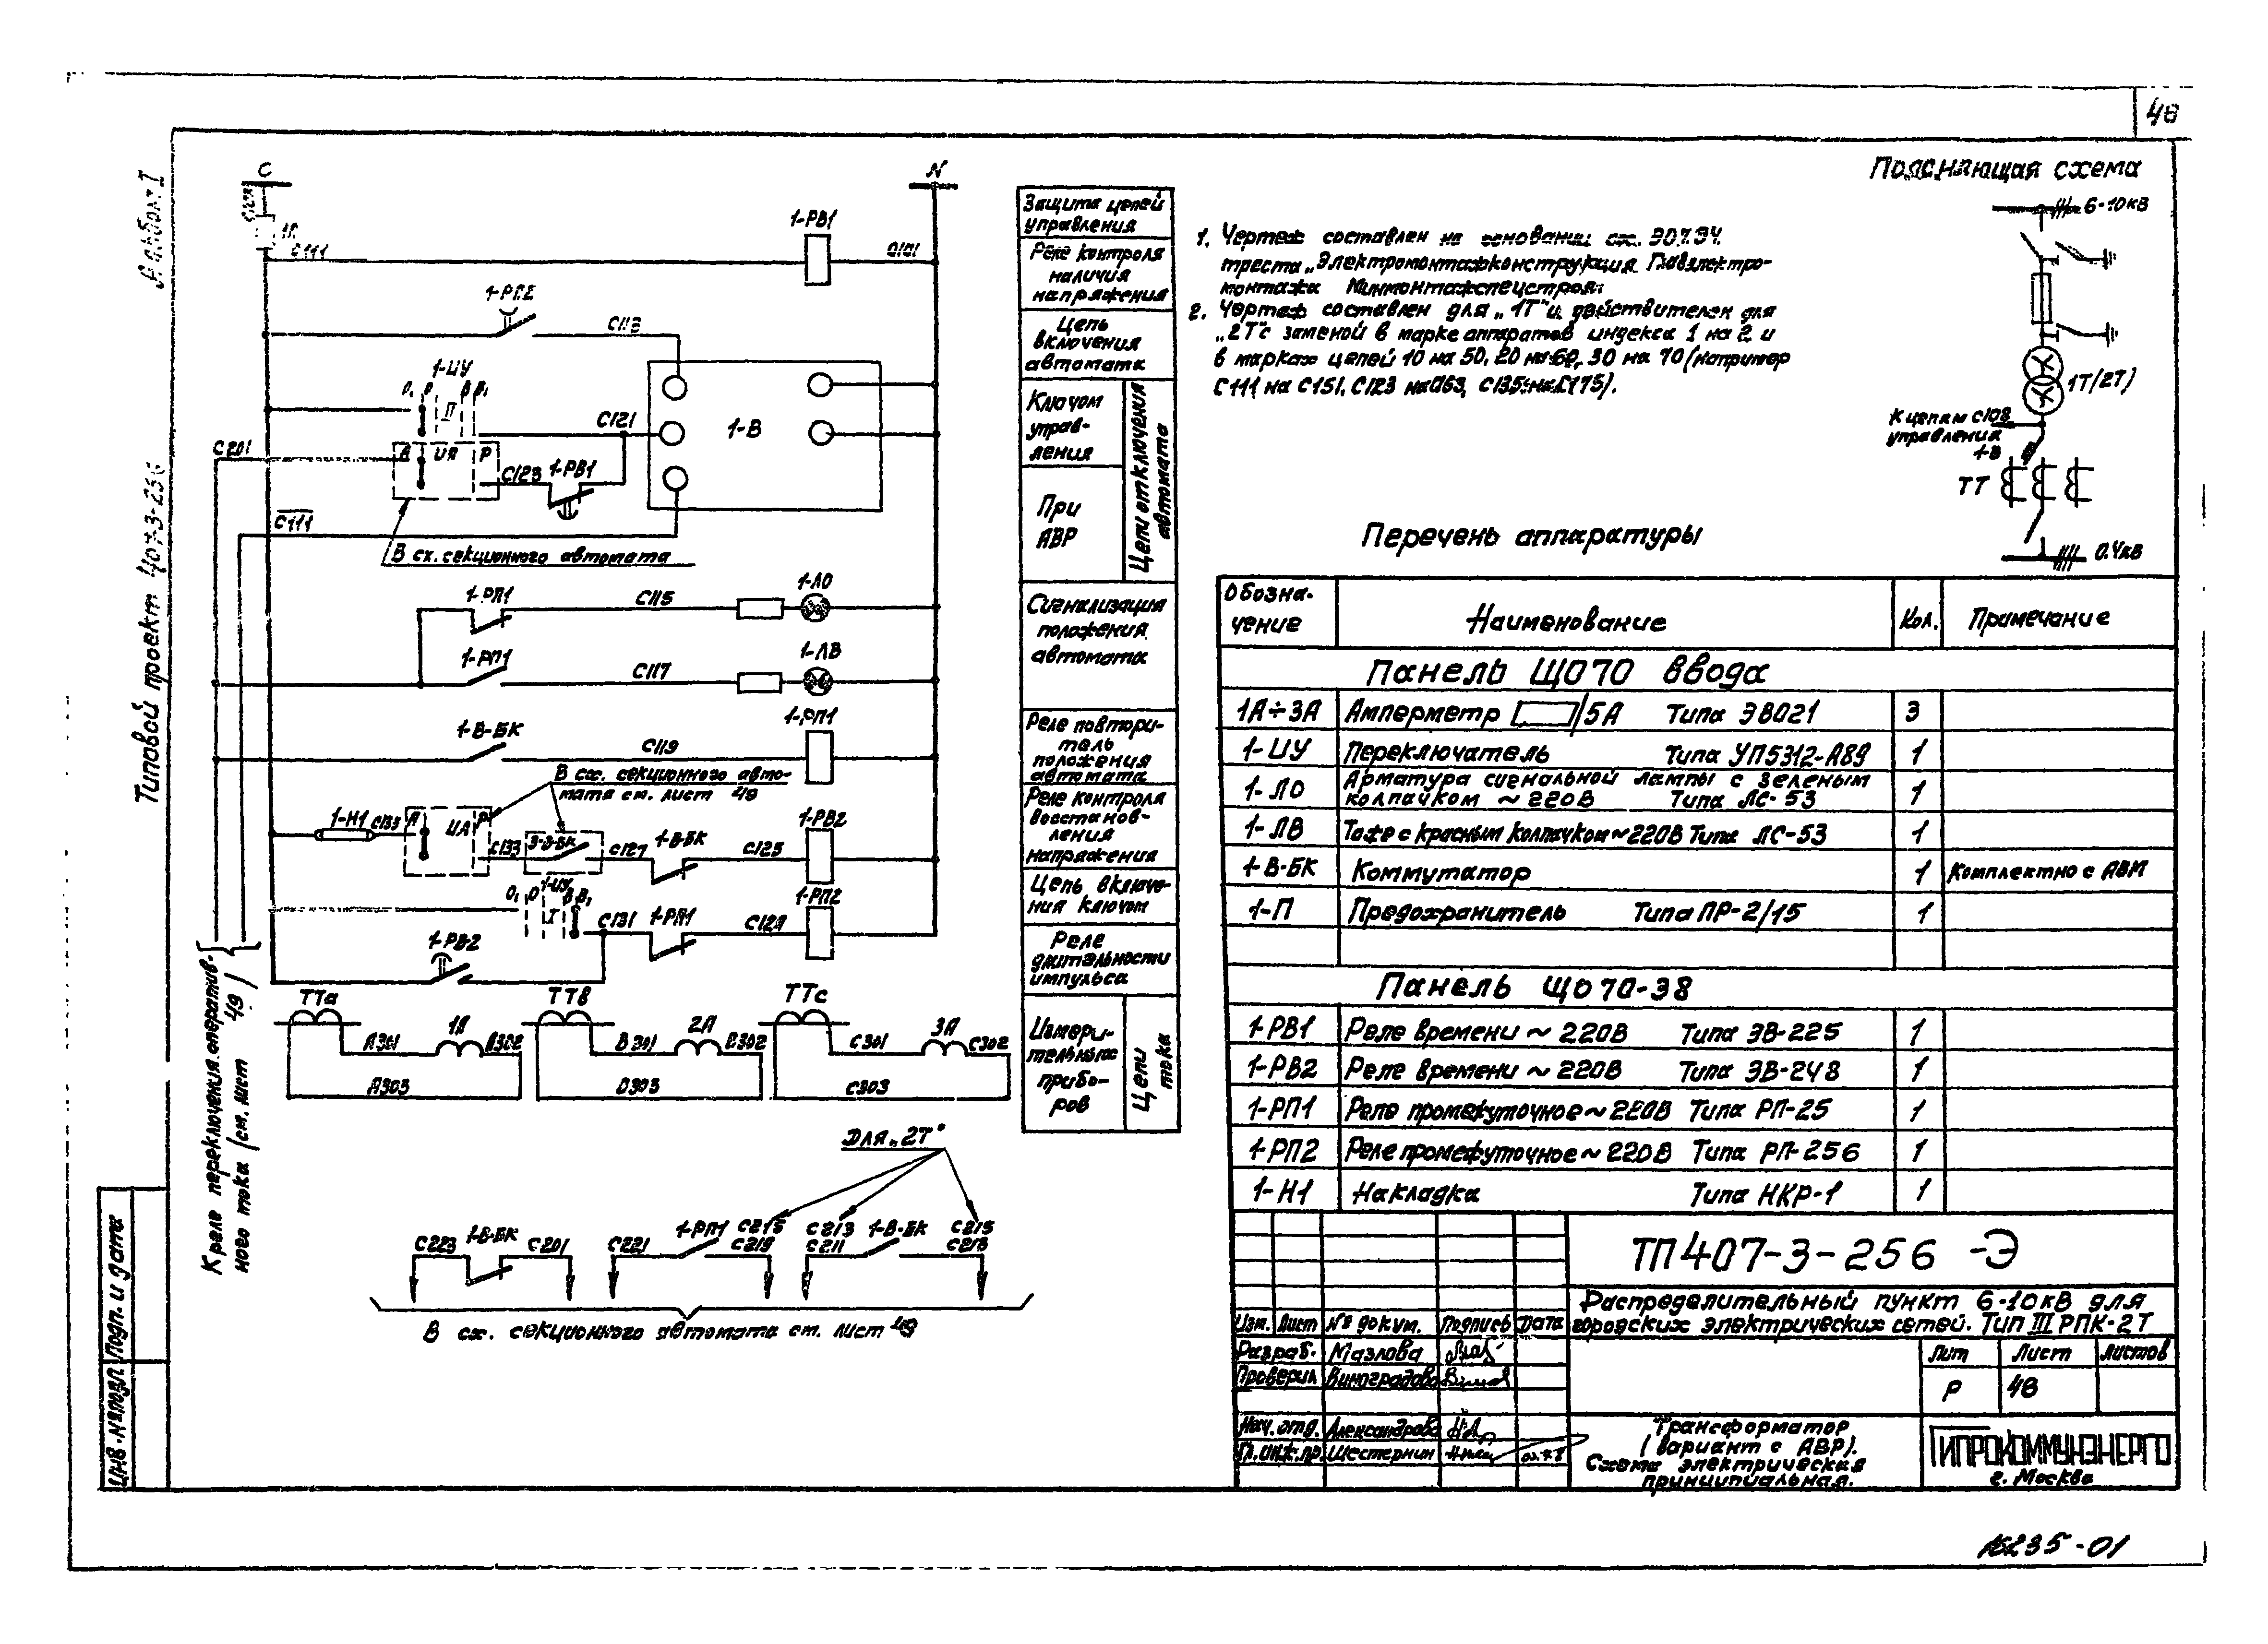 48
Альбом I
Типовой проект 407-3-256
Инв. № подл.
Подп. и дата
С
N
1П
С111
1-РВ1
1-РП2
С113
1-ЦУ
О₁ О
II
В В₁
С201
А
ЦА
Р
С121
С123
1-РВ1
1-В
С111
В сх. секционного автомата
1-РП1
С115
1-ЛО
1-РП1
С117
1-ЛВ
1-В-БК
С119
1-РП1
В сх. секционного авто-
мата см. лист 49
1-Н1
С135
А
ЦА
Р
С133
3-В-БК
С127
1-В-БК
С125
1-РВ2
О₁ О
1-ЦУ
I
В В₁
С131
1-РП1
С129
1-РП2
1-РВ2
К реле переключения оператив-
ного тока (см. лист 49)
ТТа
ТТв
ТТс
А301
1А
А302
А303
В301
2А
В302
В303
С301
3А
С302
С303
Для „2Т"
С223
1-В-БК
С201
С221
1-РП1
С215
С219
С213
С211
1-В-БК
С215
С213
В сх. секционного автомата см. лист 49
Защита цепей
управления
Реле контроля
наличия
напряжения
Цепь
включения
автомата
Ключом
управ-
ления
При
АВР
Цепи отключения
автомата
Сигнализация
положения
автомата
Реле повтори-
тель
положения
автомата
Реле контроля
восстанов-
ления
напряжения
Цепь включе-
ния ключом
Реле
длительности
импульса
Измери-
тельных
прибо-
ров
Цепи
тока
Поясняющая схема
1. Чертеж составлен на основании сх.
треста „Электромонтажконструкция Главэлектро-
монтажа Минмонтажспецстроя.
2. Чертеж составлен для „1Т" и действителен для
„2Т" с заменой в марке аппаратов индекса 1 на 2 и
в марках цепей 10 на 50, 20 на 60, 30 на 70 (например
С111 на С151, С123 на С163, С135 на С175).
6-10кВ
1Т/2Т)
К цепям С108
управления
1-В
ТТ
0.4кВ
Перечень аппаратуры
Обозна-
чение
Наименование
Кол.
Примечание
Панель ЩО70 ввода
1А÷3А Амперметр /5А Типа ЭВ021 3
1-ЦУ Переключатель Типа УП5312-А89 1
1-ЛО Арматура сигнальной лампы с зеленым
колпачком ~ 220В Типа ЛС-53 1
1-ЛВ Тоже с красным колпачком ~220В Типа ЛС-53 1
1-В-БК Коммутатор 1 Комплектно с АВМ
1-П Предохранитель Типа ПР-2/15 1
Панель ЩО70-38
1-РВ1 Реле времени ~ 220В Типа ЭВ-225 1
1-РВ2 Реле времени ~ 220В Типа ЭВ-248 1
1-РП1 Реле промежуточное ~ 220В Типа РП-25 1
1-РП2 Реле промежуточное ~ 220В Типа РП-256 1
1-Н1 Накладка Типа НКР-1 1
ТП407-3-256 -Э
Распределительный пункт 6-10кВ для
городских электрических сетей. Тип III РПК-2Т
Изм. Лист № докум. Подпись Дата
Разраб. Мазлова
Проверил Виноградова
Нач. отд. Александрова
Гл. инж. пр. Шестернин
Лит Лист Листов
Р 48
Трансформатор
(вариант с АВР).
Схема электрическая
принципиальная.
ГИПРОКОММУНЭНЕРГО
г. Москва
16235-01